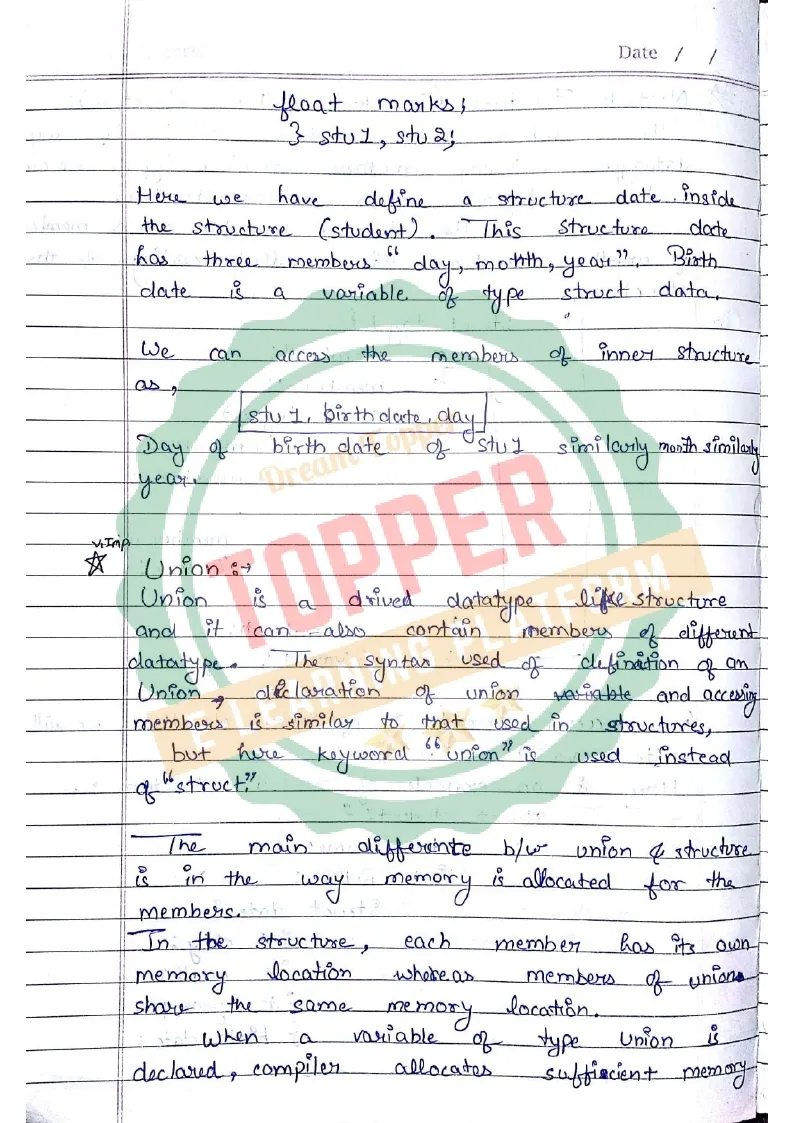 Date / /
float marks;
} stu1, stu2;
Here we have define a structure date inside
the structure (student). This structure date
has three members "day, month, year". Birth
date is a variable of type struct data.
We can access the members of inner structure
as,
stu1. birthdate. day
Day of birth date of stu1 similarly month similarly
year.
Dream Topper
TOPPER
E LEARNING PLATFORM
V.Imp
Union :→
Union is a drived datatype like structure
and it can also contain members of different
datatype. The syntax used of defination of an
Union, declaration of union variable and accessing
members is similar to that used in structures,
but here keyword "union" is used instead
of "struct."
The main differente b/w union & structure
is in the way memory is allocated for the
members.
In the structure, each member has its own
memory location whereas members of unions
share the same memory location.
When a variable of type Union is
declared, compiler allocates suffiecient memory